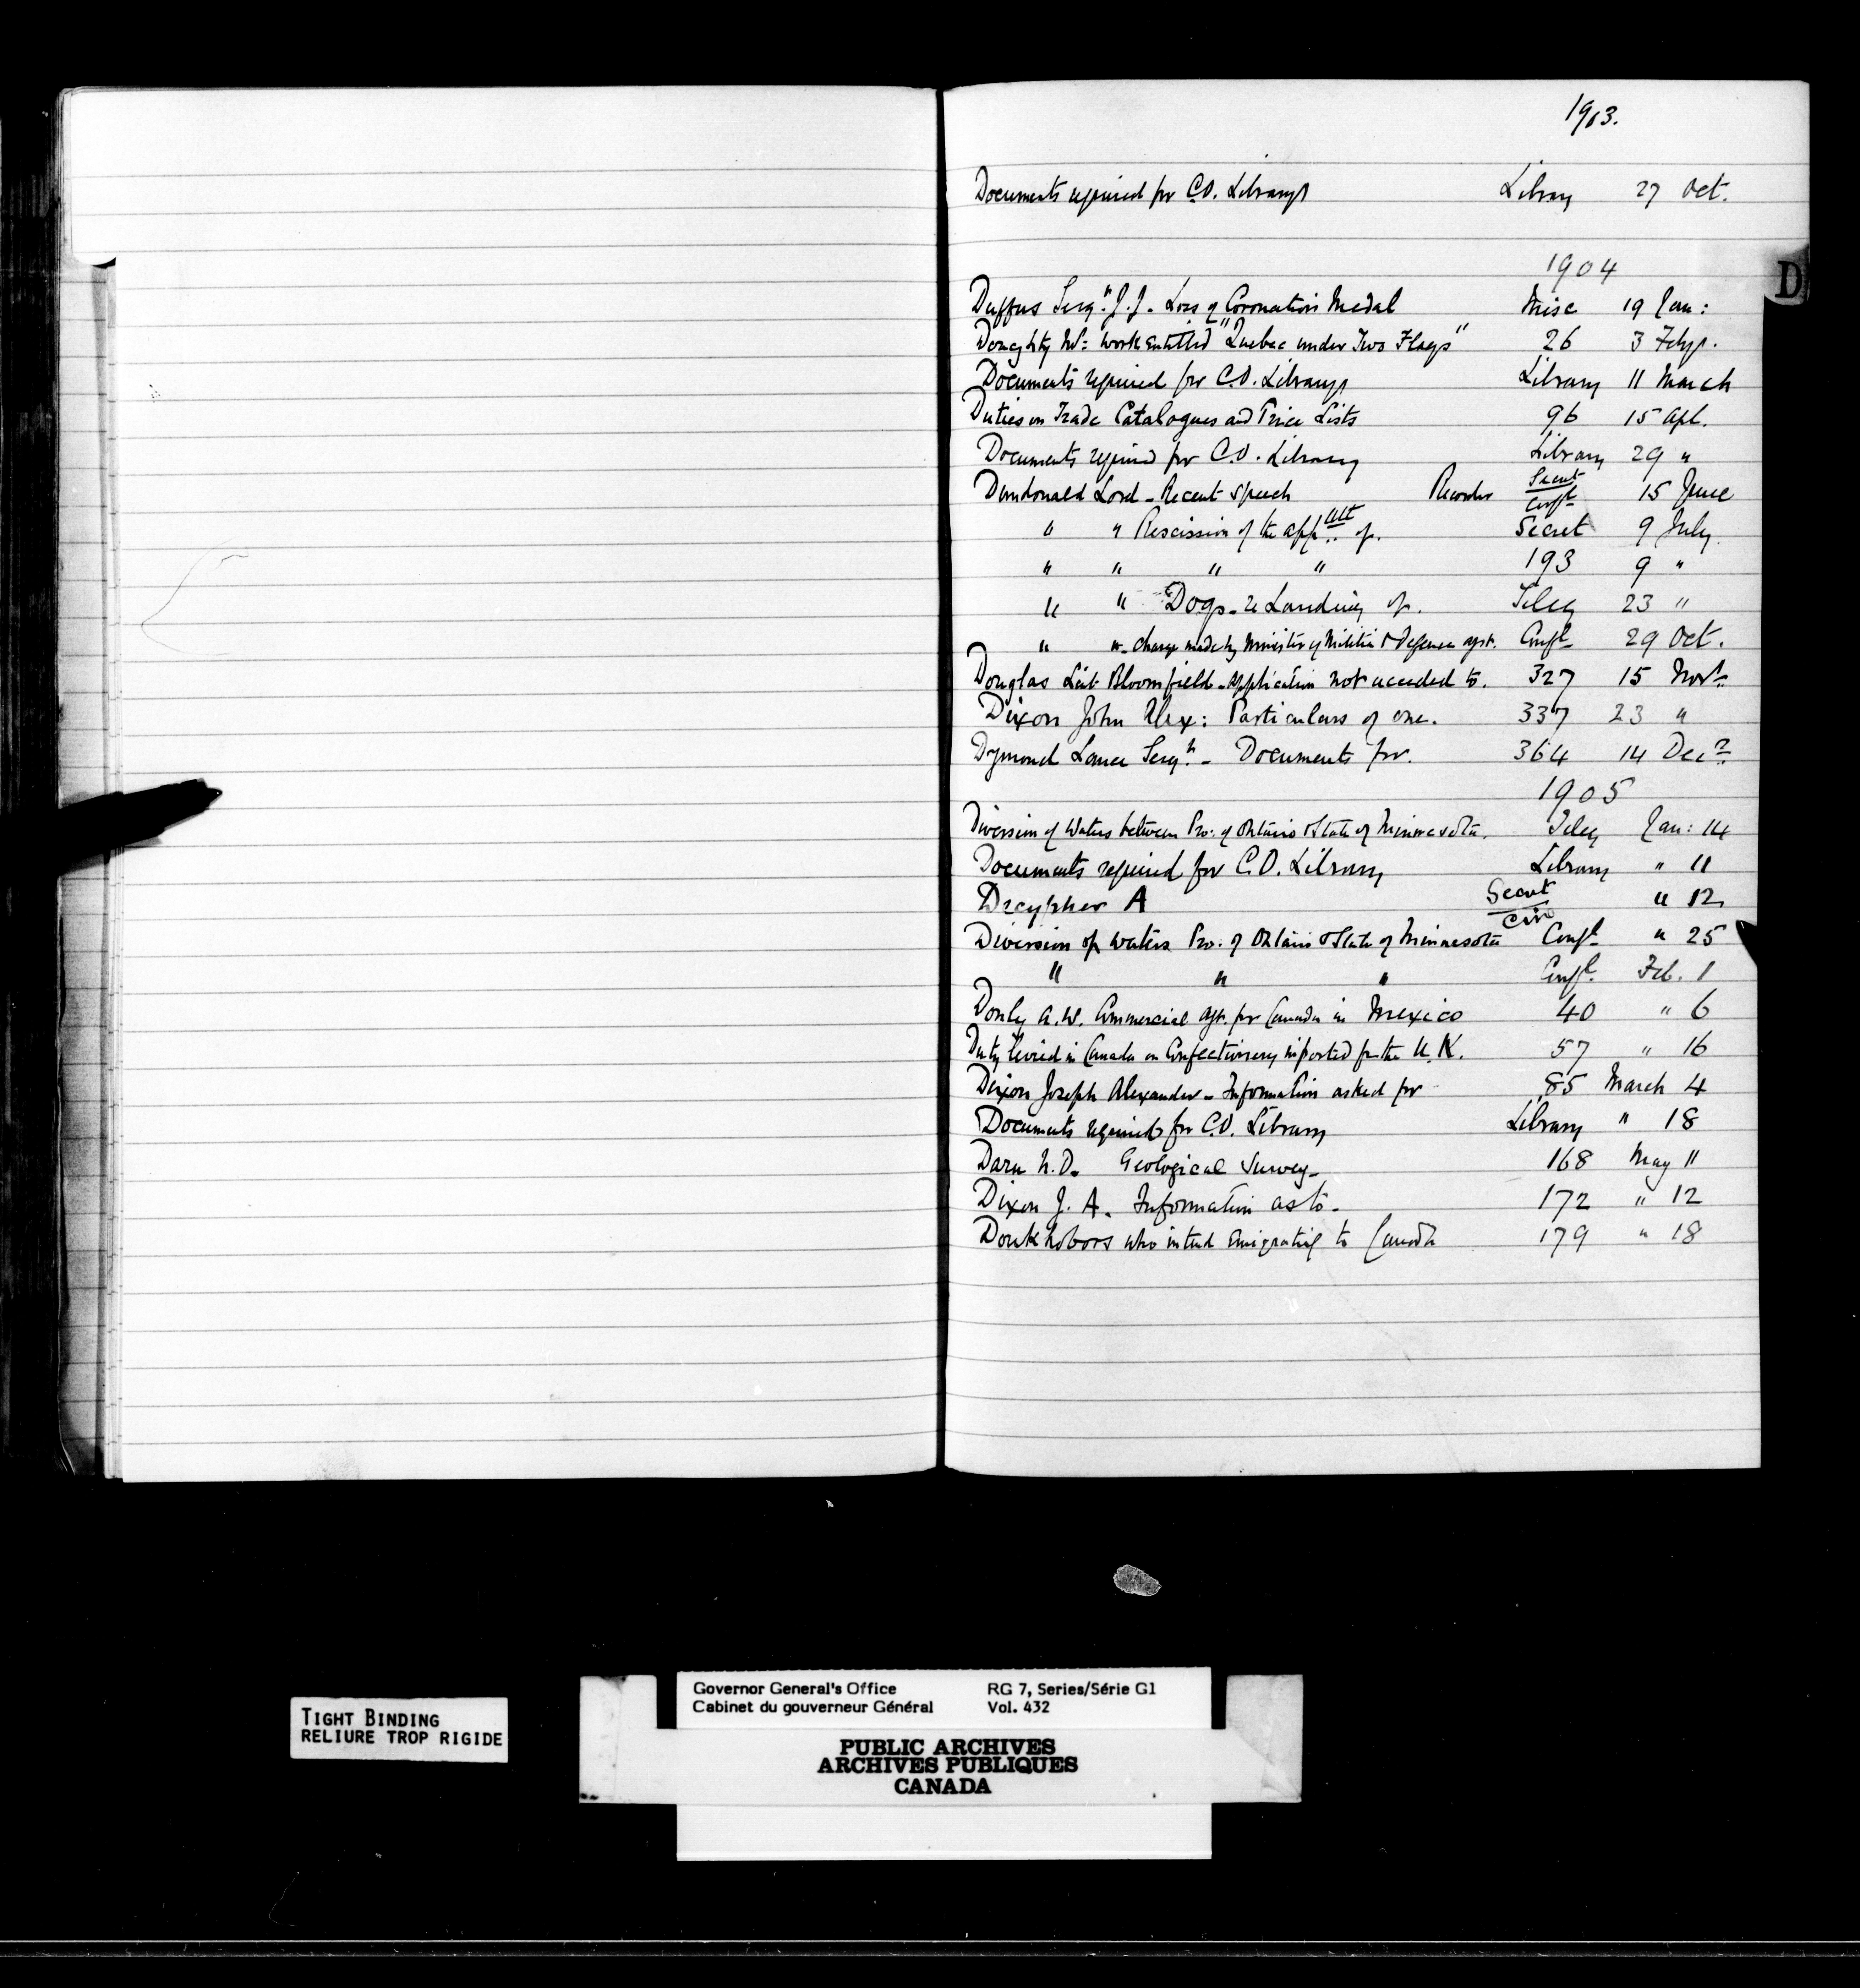 1903.
Documents required for C.O. Library Library 27 Oct.
D
1904
Duffus Sergt. J.J. - Loss of Coronation Medal Misc 19 Jan:
Doughty Mr: Work entitled "Quebec under Two Flags" 26 3 Feby.
Documents required for C.O. Library Library 11 March
Duties on Trade Catalogues and Price Lists 96 15 Apl.
Documents required for C.O. Library Library 29 "
Dundonald Lord - Recent speech Secret Confl 15 June
" " Rescission of the appt. of. Secret 9 July.
" " " " 193 9 "
" " Dogs - re Landing of. Teleg 23 "
" " - Charge made by Minister of Militia & Defence agst. Confl 29 Oct.
Douglas Lieut Bloomfield - Application not acceded to. 327 15 Novr.
Dixon John Alex: Particulars of one. 337 23 "
Dymond Lance Sergt. - Documents for. 364 14 Decr.
1905
Diversion of Waters between Pro: of Ontario & State of Minnesota. Teleg Jan: 14
Documents required for C.O. Library Library " 11
Decypher A Secret Circ " 12
Diversion of Waters Pro: of Ontario & State of Minnesota Confl " 25
" " " Confl. Feb. 1
Donly A.W. Commercial Agt. for Canada in Mexico 40 " 6
Duty levied in Canada on Confectionery imported fm the U.K. 57 " 16
Dixon Joseph Alexander - Information asked for 85 March 4
Documents required for C.O. Library Library " 18
Geological Survey - 168 May 11
Dixon J. A. Information as to - 172 " 12
Doukhobors who intend Emigrating to Canada 179 " 18
TIGHT BINDING
RELIURE TROP RIGIDE
Governor General's Office RG 7, Series/Série G1
Cabinet du gouverneur Général Vol. 432
PUBLIC ARCHIVES
ARCHIVES PUBLIQUES
CANADA